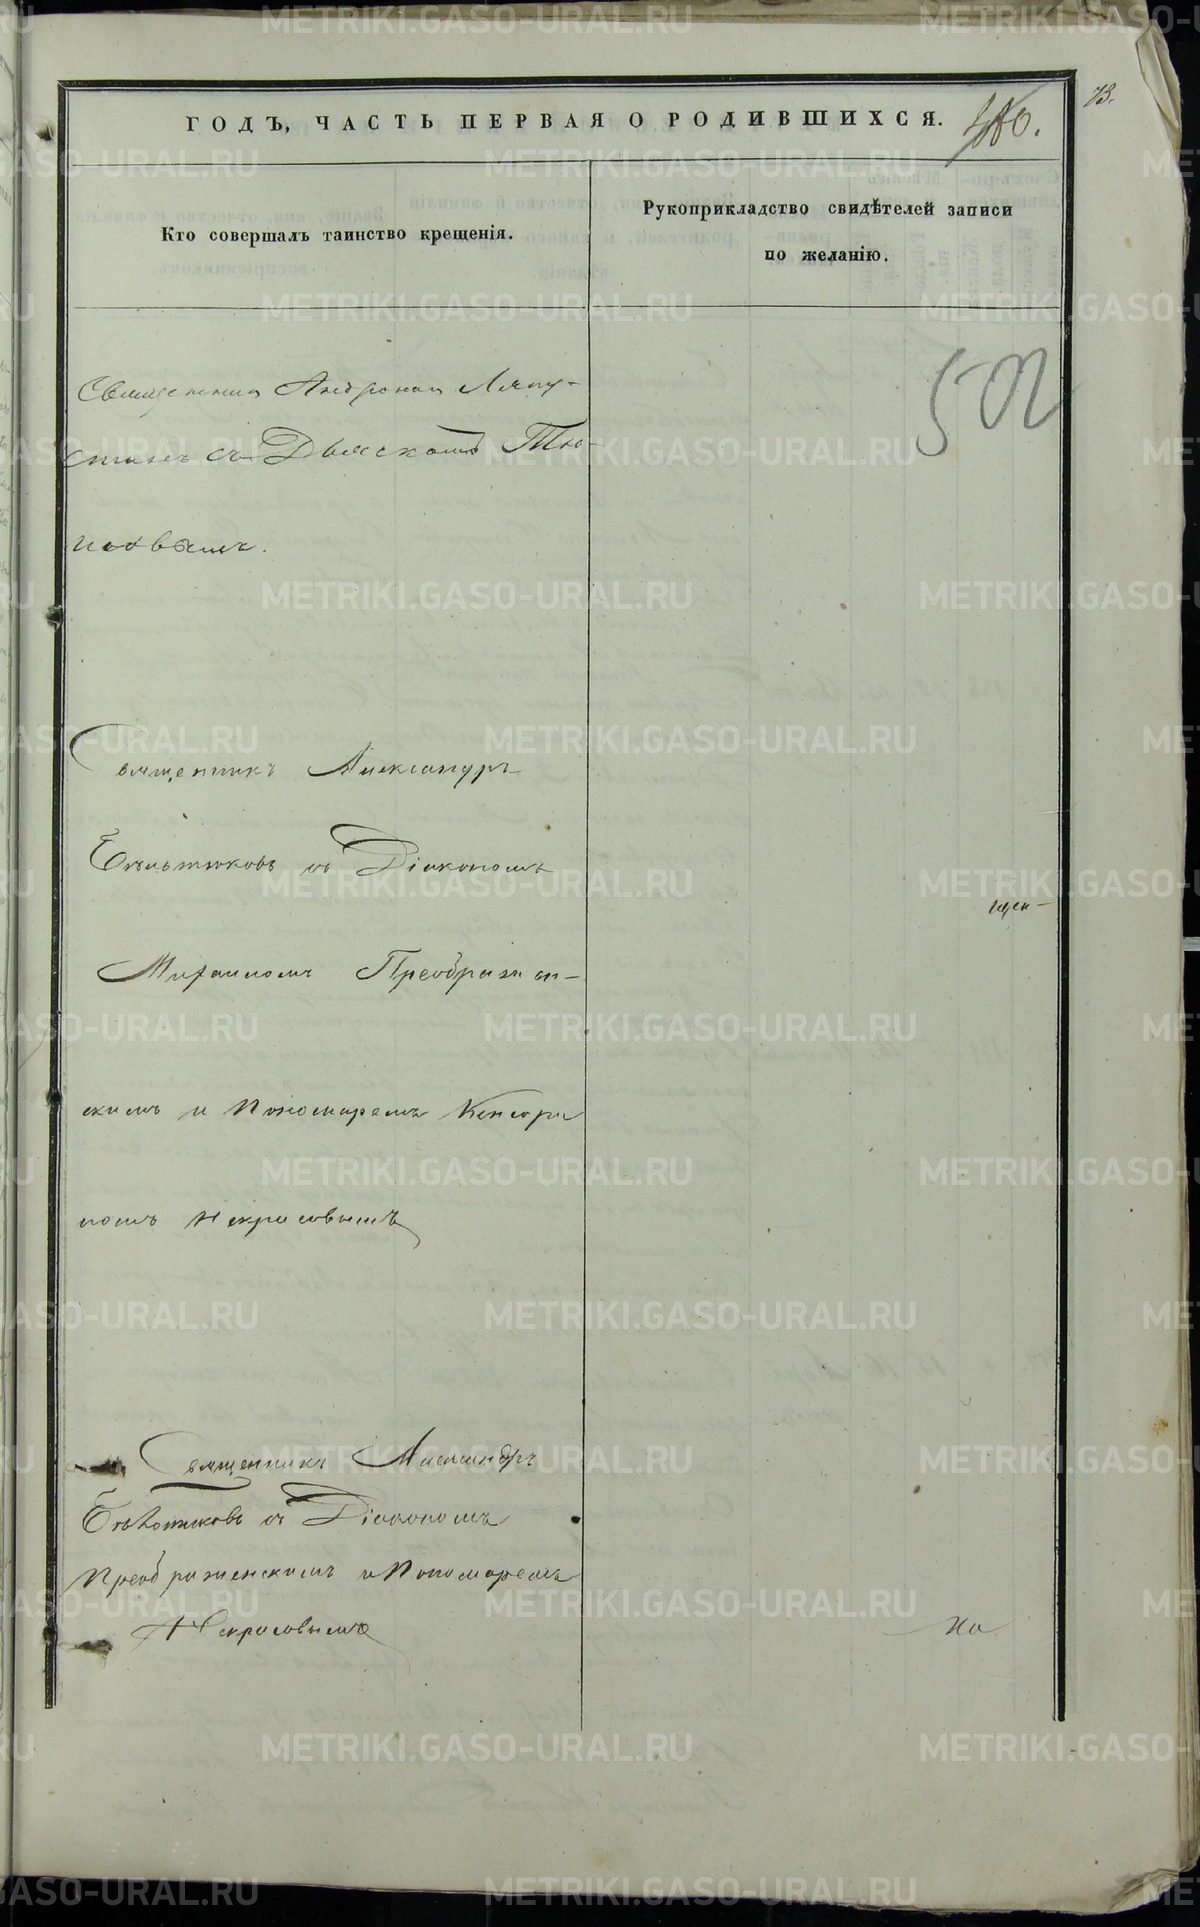 73.
ГОДЪ, ЧАСТЬ ПЕРВАЯ О РОДИВШИХСЯ.
Кто совершалъ таинство крещенія.
Рукоприкладство свидѣтелей записи
по желанію.
502
Священникъ Андроникъ Ляпу-
стинъ съ Дьячкомъ
Священникъ Александръ
съ Діакономъ
Михаиломъ Преображен-
скимъ и Пономаремъ Кенсори
номъ Некрасовымъ
Священникъ Александръ
съ Діакономъ
Преображенскимъ и Пономаремъ
Некрасовымъ
METRIKI.GASO-URAL.RU